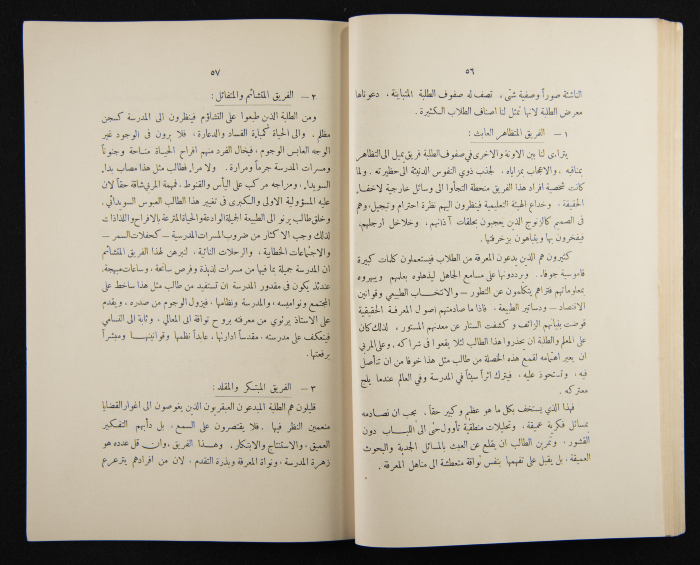 ٥٦
الناشئة صوراً وصفية شتى ، تصف له صفوف الطلبة المتباينة . دعوناها
معرض الطلبة لانها تمثل لنا اصناف الطلاب الكثيرة .
١ – الفريق المتظاهر العابث :
يتراءى لنا بين الاونة والاخرى في صفوف الطلبة فريق يميل الى التظاهر
بمنافيه . والاعجاب بمزاياه . لجذب ذوي النفوس الدنيئة الى حظيرته . ولما
كانت شخصية افراد هذا الفريق منحطة التجأوا الى وسائل خارجية لاخفاء
الحقيقة . وخداع الهيئة التعليمية فينظرون اليهم نظرة احترام وتبجيل ، وهم
في الصميم كالزنوج الذين يعجبون بحلقات آذانهم . وخلاخل ارجلهم .
فيفخرون بها ويتباهون بزخرفتها .
كثيرون هم الذين يدعون المعرفة من الطلاب فيستعملون كلمات كبيرة
قاموسية جوفاء . ويرددونها على مسامع الجاهل ليذهلوه بعلمهم ويبهروه
بمعلوماتهم فتراهم يتكلمون عن التطور – والانتخاب الطبيعي وقوانين
الاقتصاد – ودساتير الطبيعة . فاذا ما صادمتهم اصول المعرفة الحقيقية
قوضت بنيانهم الزائف وكشفت الستار عن معدنهم المستور ، لذلك كان
على المعلم والطلبة ان يحذروا هذا الطالب لئلا يقعوا في شراكه . وعلى المربي
ان يعير اهتمامه لقمع هذه الخصلة من طالب مثل هذا خوفا من ان تتأصل
فيه ، وتستحوذ عليه . فيترك اثراً سيئاً في المدرسة وفي العالم عندما يلج
معتركه .
فهذا الذي يستخف بكل ما هو عظيم وكبير حقاً . يجب ان نصادمه
بمسائل فكرية عميقة . وتحليلات منطقية تأوول حتى الى اللباب دون
القشور . وتمرين الطالب ان يقلع عن العبث بالمسائل الجدية والبحوث
العميقة . بل يقبل على تفهمها بنفس تواقة متعطشة الى مناهل المعرفة .
٥٧
٢ – الفريق المتشائم والمتفائل :
ومن الطلبة الذين طبعوا على التشاؤم فينظرون الى المدرسة كسجن
مظلم . والى الحياة كمباءة الفساد والدعارة . فلا يرون في الوجود غير
الوجه العابس الوجوم ، فيخال الفرد منهم افراح الحياة مناحة وجنوناً
ومسرات المدرسة جرماً ومرارة . ولا مراء فطالب مثل هذا مصاب بداء
السويداء . ومزاجه مركب على اليأس والقنوط ، فمهمة المربي شاقة حقاً لان
عليه المسؤولية الاولى والكبرى في تغيير هذا الطالب العبوس السويدائي .
وخلق طالب يرنو الى الطبيعة الجميلة الوادعة والحياة المترعة بالافراح واللذاذات
لذلك وجب الاكثار من ضروب المسرات المدرسية – كحفلات السمر –
والاجتماعات الخطابية ، والرحلات النائية . لتبرهن لهذا الفريق المتشائم
ان المدرسة جميلة بما فيها من مسرات لذيذة وفرص سانحة ، وساعات مبهجة .
عندئذ يكون في مقدور المدرسة ان تستفيد من طالب مثل هذا ساخط على
المجتمع ونواميسه ، والمدرسة ونظامها . فيزول الوجوم من صدره . ويقدم
على الاستاذ يرتوي من معرفته بروح تواقة الى المعالي . وثابة الى التسامي
فينعكف على مدرسته . مقدساً ادارتها ، عابداً نظمها وقوانينها ومبشراً
برفعتها .
٣ – الفريق المبتكر والمقلد :
قليلون هم الطلبة المبدعون العبقريون الذين يغوصون الى اغوار القضايا
منعمين النظر فيها . فلا يقتصرون على السمع . بل دأبهم التفكير
العميق ، والاستنتاج والابتكار . وهذا الفريق ، وان قل عدده هو
زهرة المدرسة ، ونواة المعرفة وبذرة التقدم . لان من افرادهم يترعرع